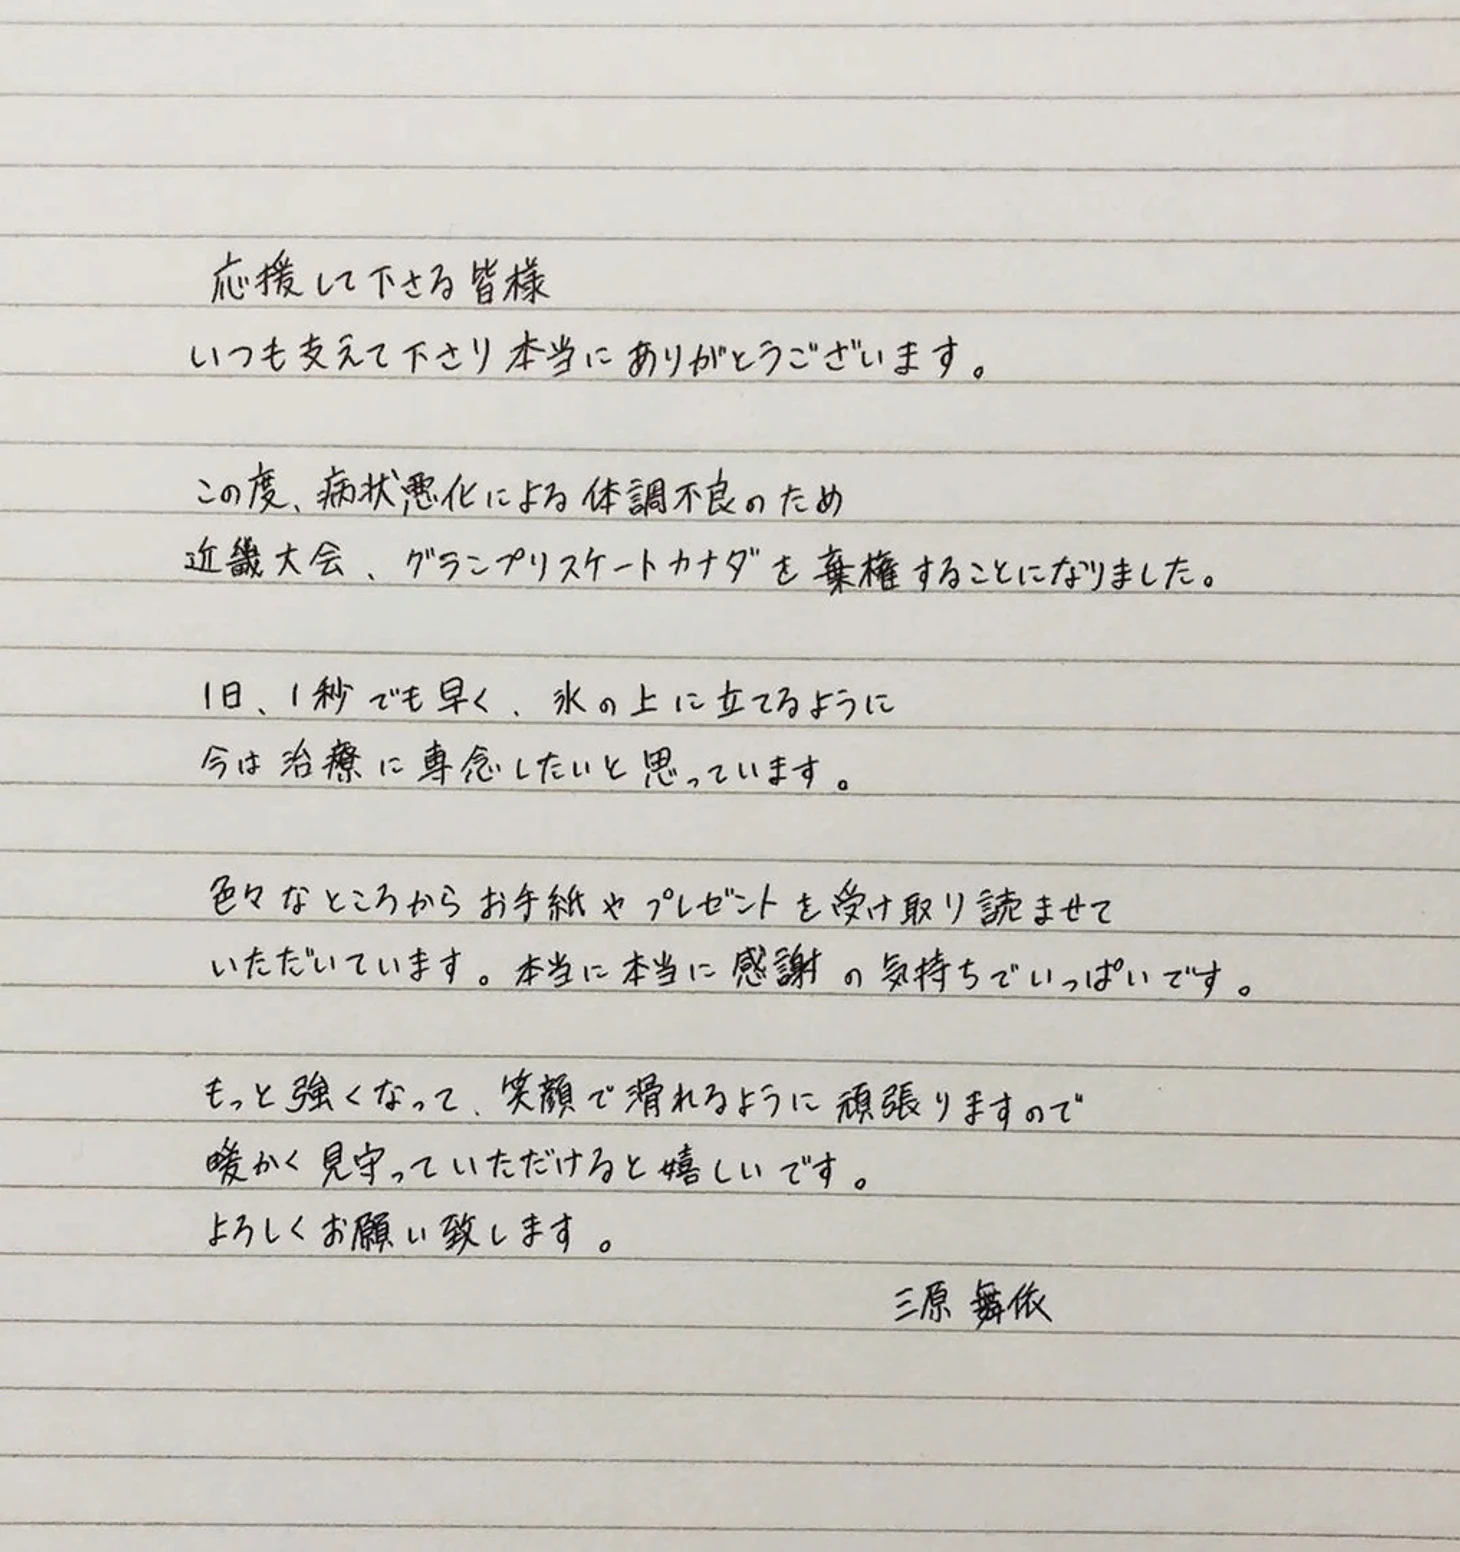 応援して下さる皆様
いつも支えて下さり本当にありがとうございます。
この度、病状悪化による体調不良のため
近畿大会、グランプリスケートカナダを棄権することになりました。
1日、1秒でも早く、氷の上に立てるように
今は治療に専念したいと思っています。
色々なところからお手紙やプレゼントを受け取り読ませて
いただいています。本当に本当に感謝の気持ちでいっぱいです。
もっと強くなって、笑顔で滑れるように頑張りますので
暖かく見守っていただけると嬉しいです。
よろしくお願い致します。
三原 舞依